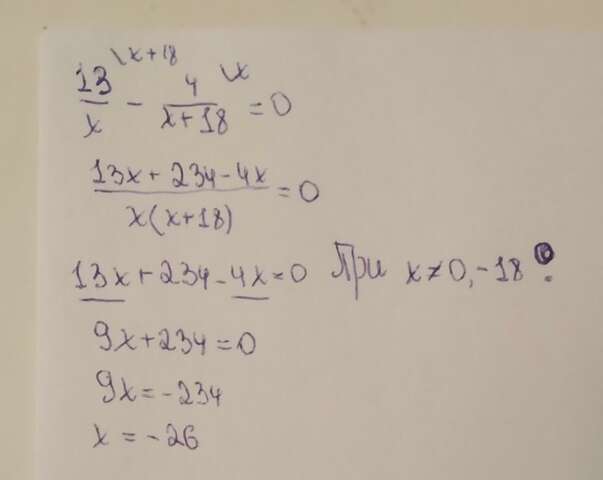 13/x \x+18 - 4/(x+18) \x = 0
(13x + 234 - 4x)/(x(x+18)) = 0
13x + 234 - 4x = 0 При x ≠ 0, -18
9x + 234 = 0
9x = -234
x = -26